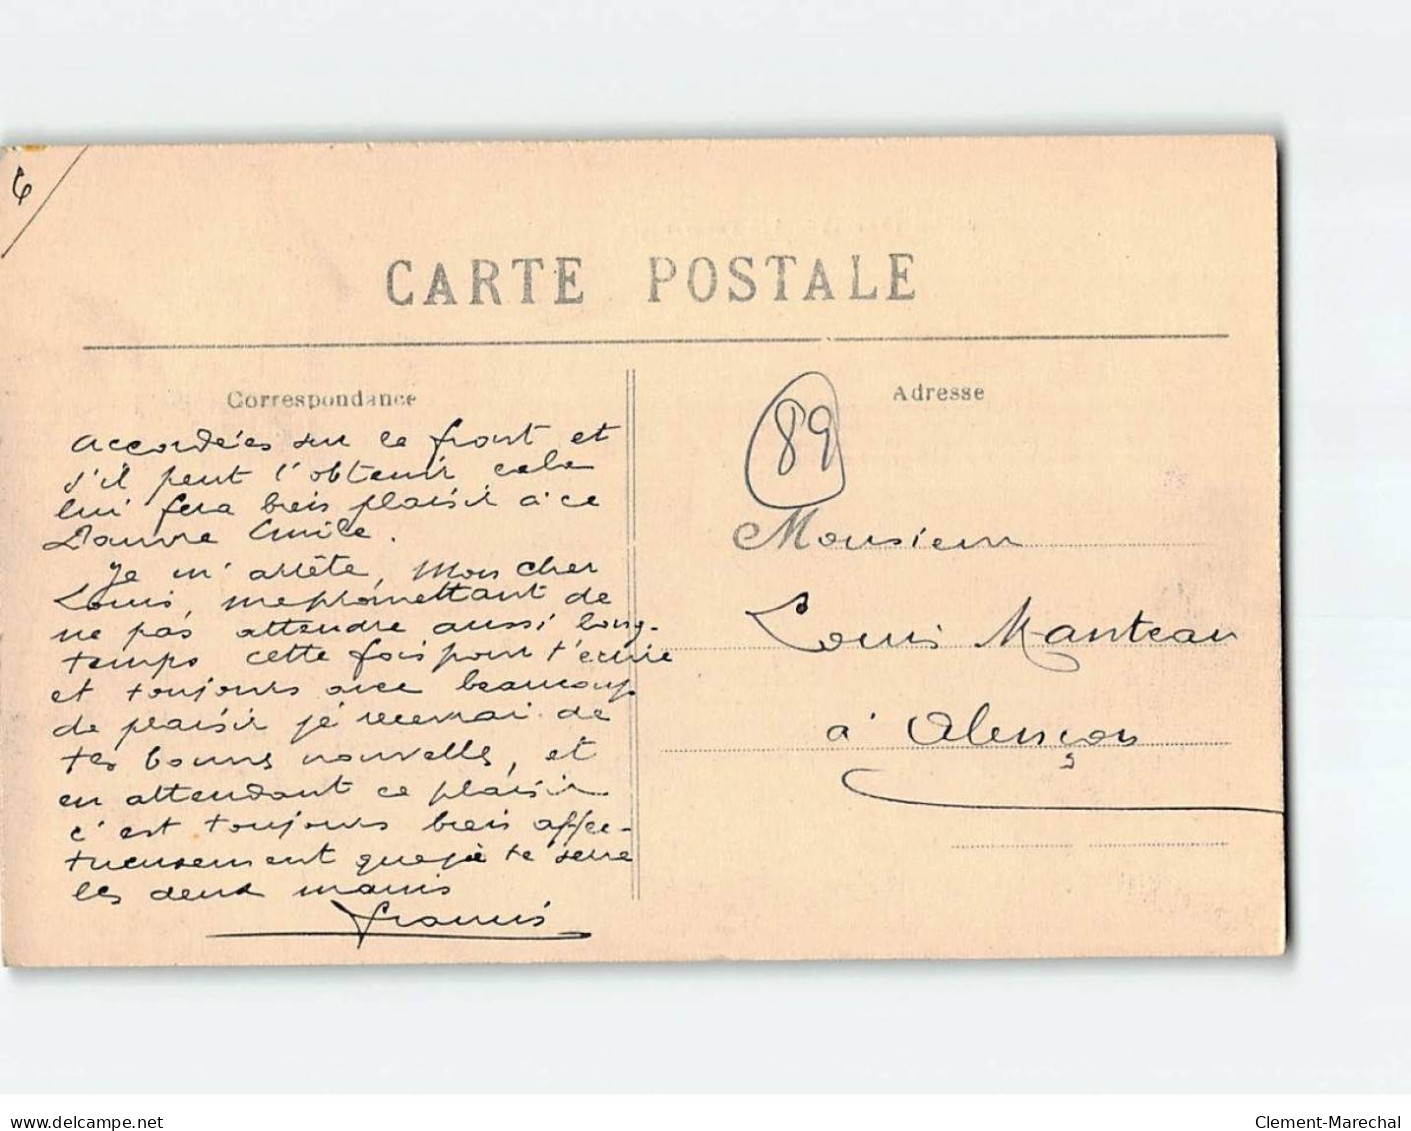 6
CARTE POSTALE
Correspondance
accordées sur le front et
s'il peut l'obtenir cela
lui fera bien plaisir à ce
Pauvre Emile.
Je m'arrête, Mon cher
Louis, me promettant de
ne pas attendre aussi long-
temps cette fois pour t'écrire
et toujours avec beaucoup
de plaisir je recevrai de
tes bonnes nouvelles, et
en attendant ce plaisir
c'est toujours bien affec-
tueusement que je te serre
les deux mains
Francis
Adresse
89
Monsieur
Louis Manteau
à Alençon
www.delcampe.net
Clement-Marechal